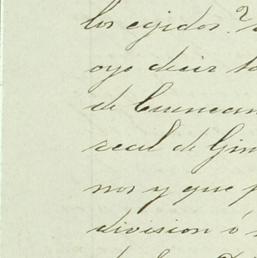 los egidos?
oyo decir
de Cuencam
real de
nos y que
division ó